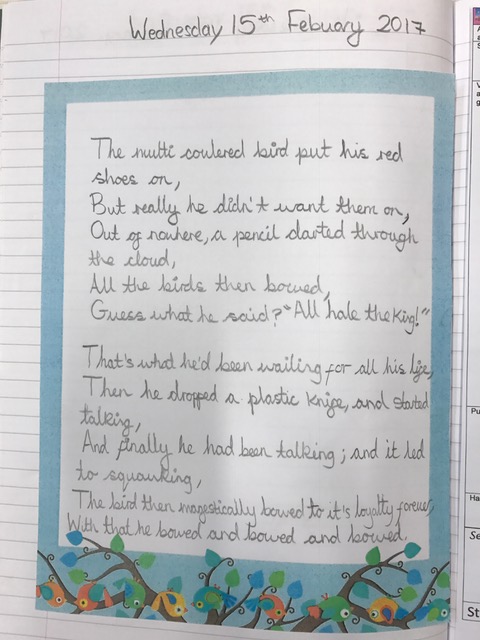 Wednesday 15th Febuary 2017
The multi coulered bird put his red
shoes on,
But really he didn't want them on,
Out of nowhere, a pencil darted through
the cloud,
All the birds then bowed,
Guess what he said? "All hale the King!"
That's what he'd been waiting for all his life,
Then he dropped a plastic knife, and started
talking,
And finally he had been talking; and it led
to squawking,
The bird then magestically bowed to it's loyalty forever,
With that he bowed and bowed and bowed.
Pu
Ha
Se
St